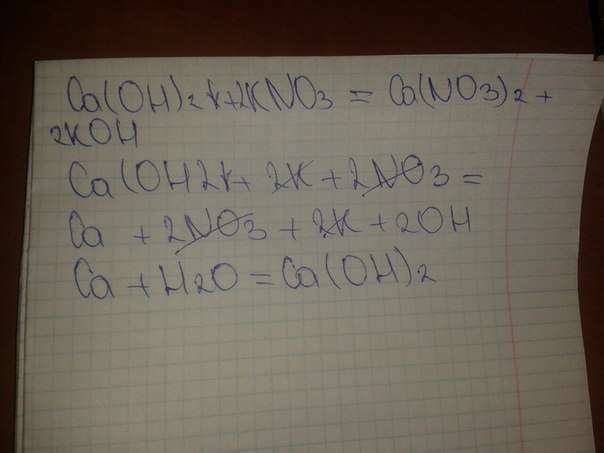 Ca(OH)2k+2KNO3 = Ca(NO3)2 +
2KOH
Ca(OH2k+ 2K + 2NO3 =
Ca + 2NO3 + 2K + 2OH
Ca + H2O = Ca(OH)2